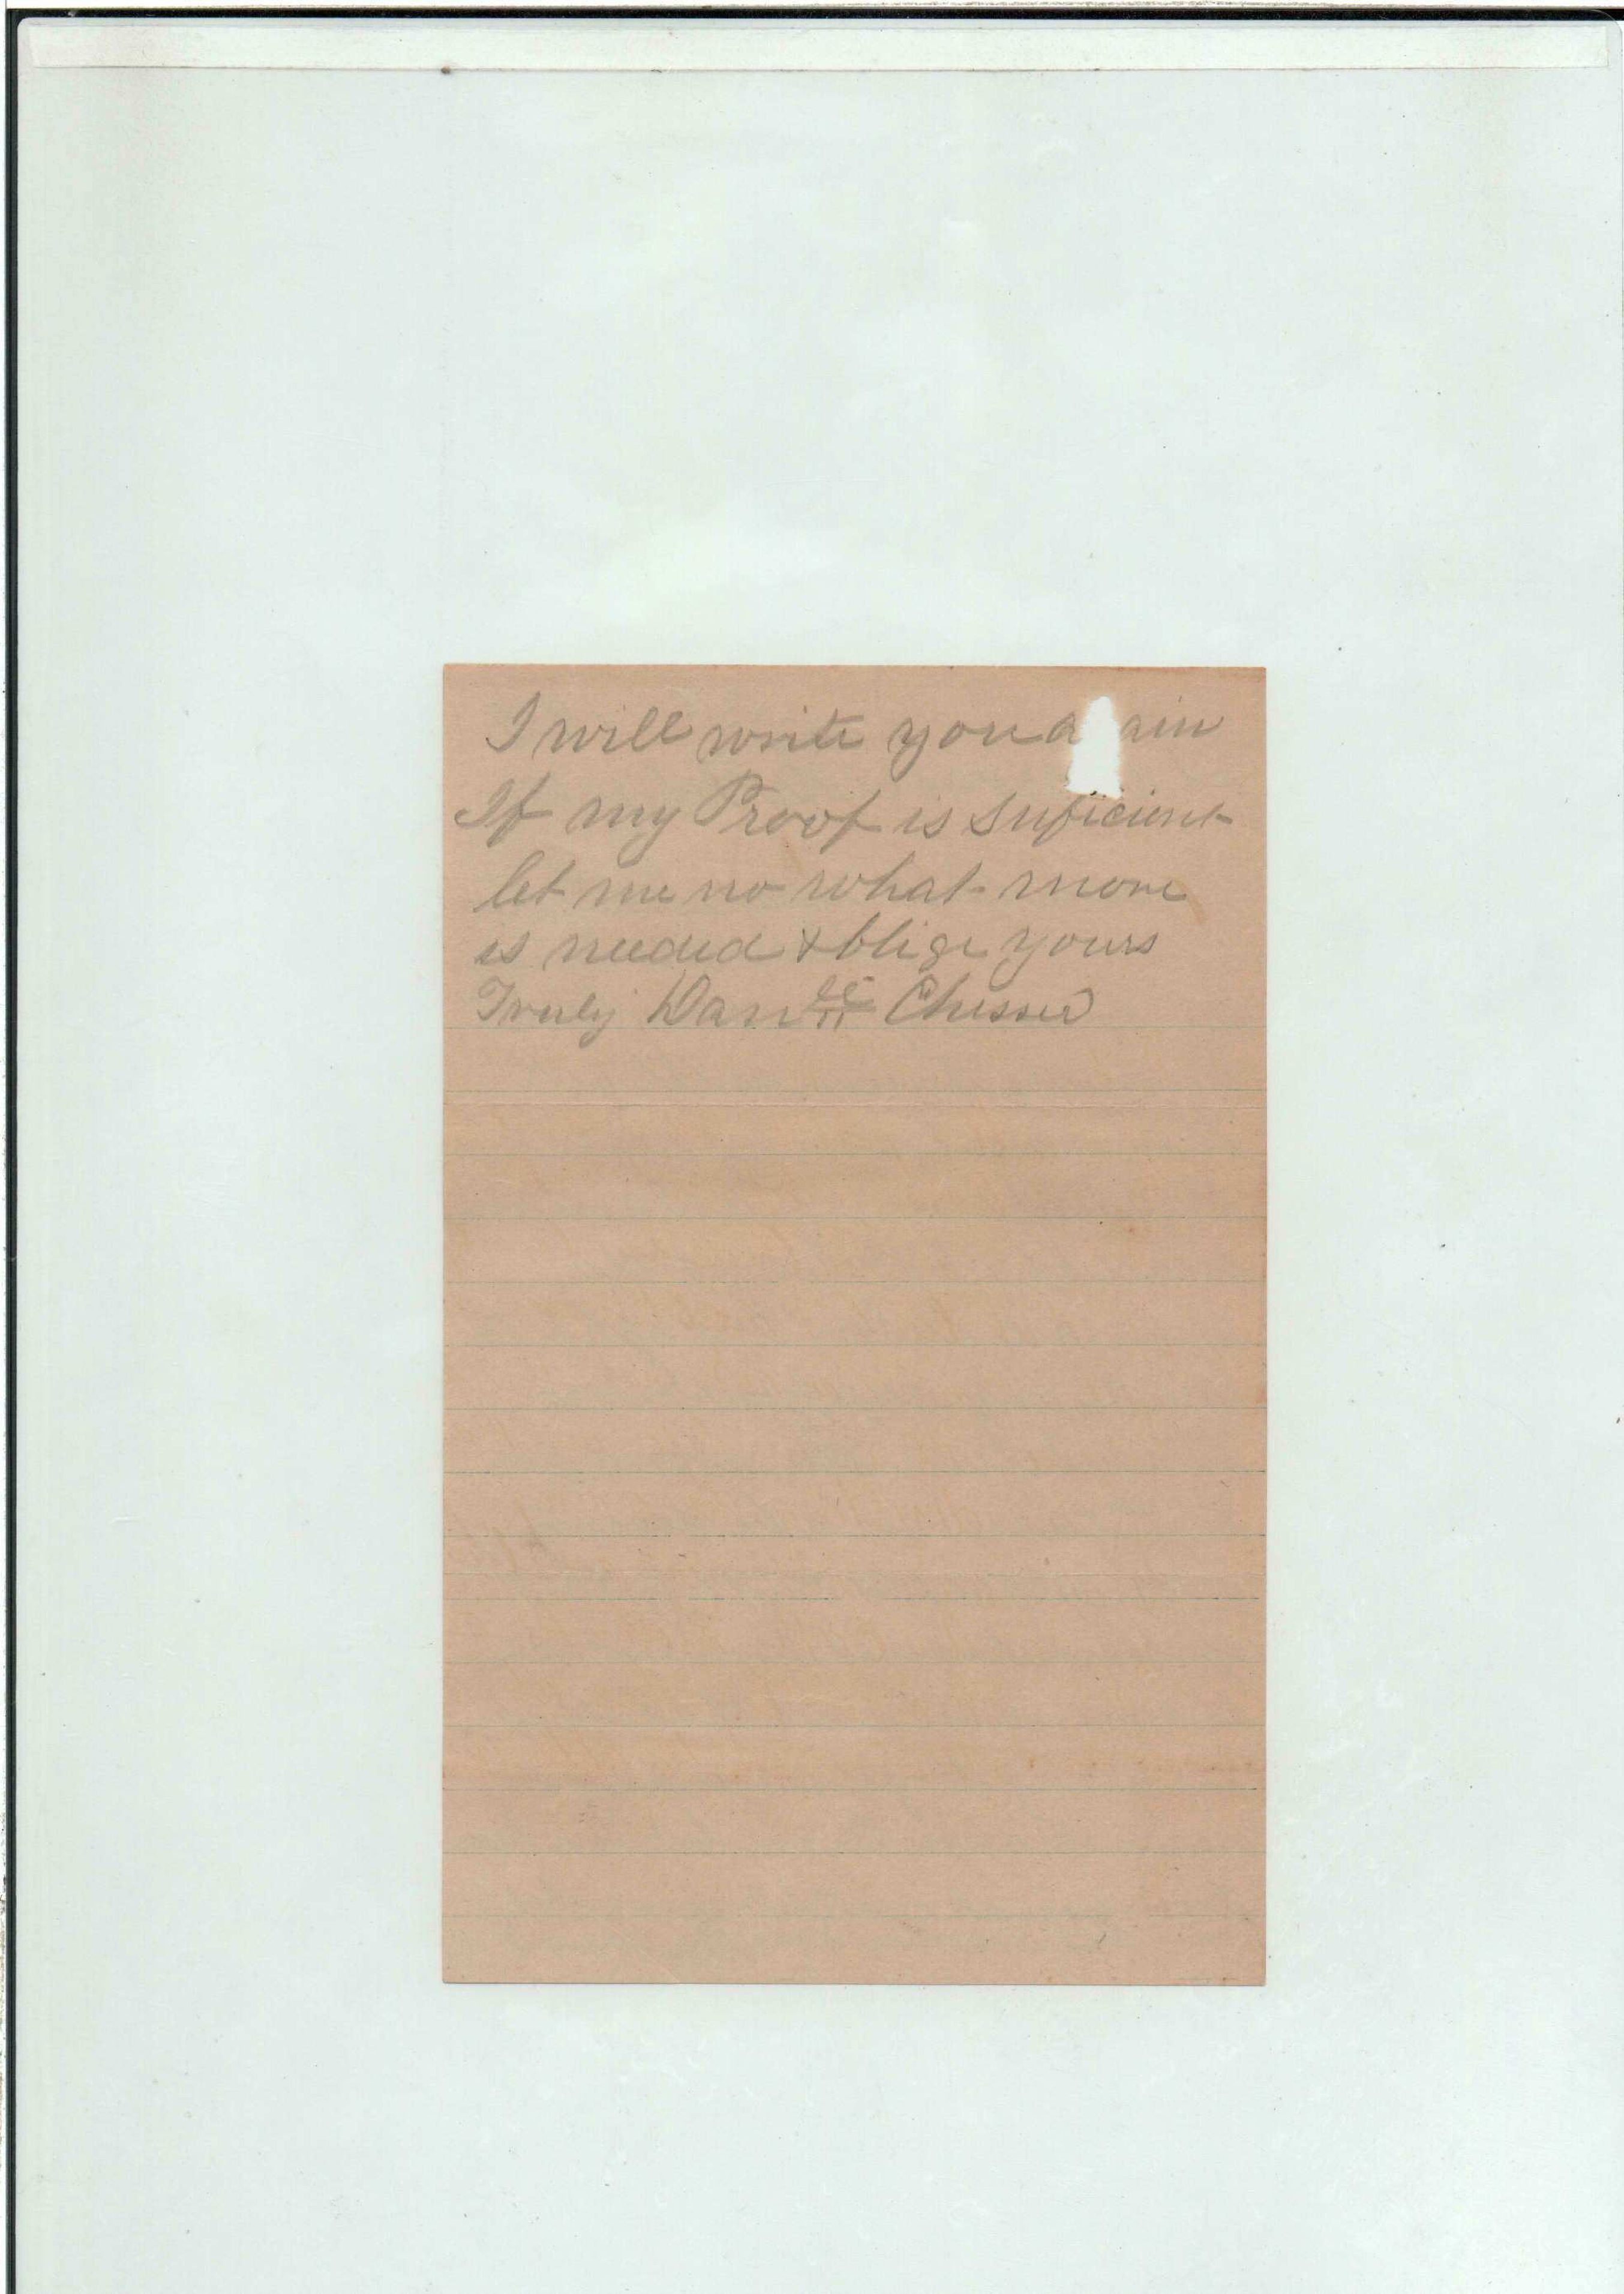 I will write you a ain
If my Proof is suficient
let me no what more
is needed & blige yours
Truly Dan Chesser